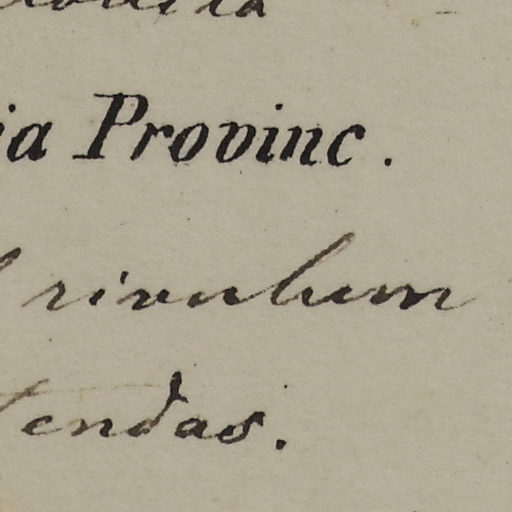 ia Provinc.
rivulum
tendas.